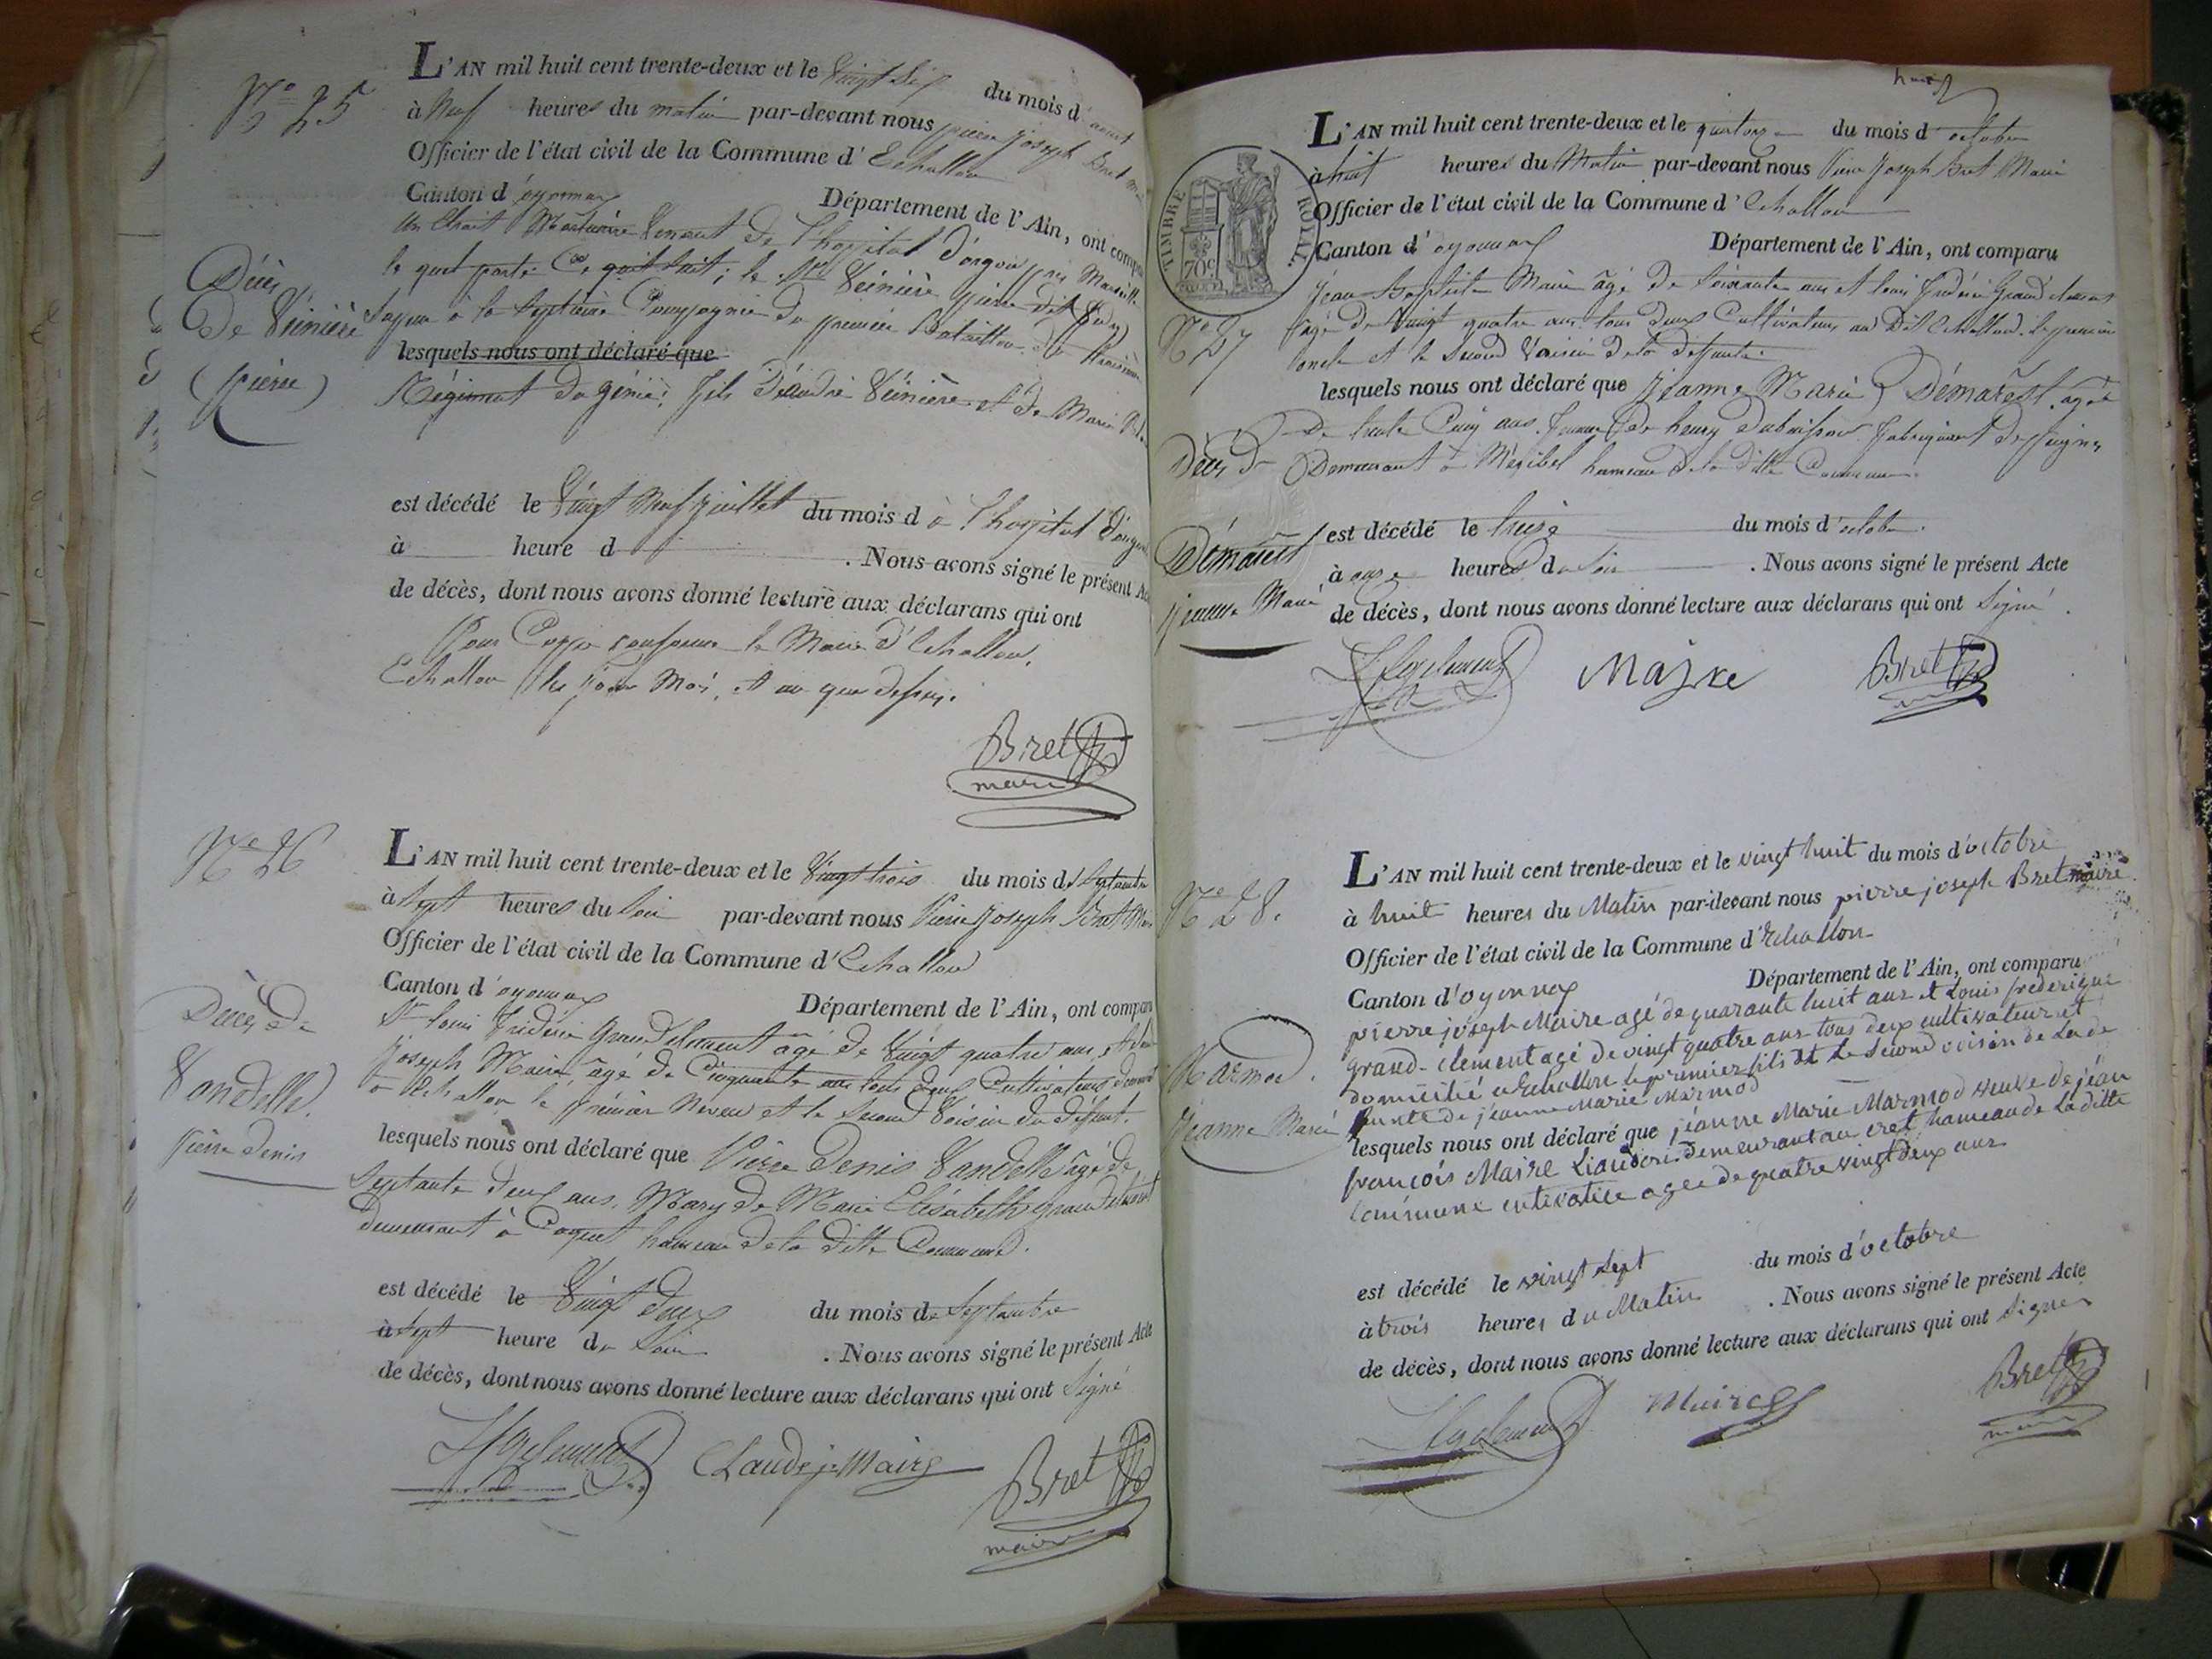 N° 25
L'AN mil huit cent trente-deux et le vingt Six du mois d'aout
à Neuf heures du matin par-devant nous pierre joseph Bret
Officier de l'état civil de la Commune d'Echallon
Canton d'oyonnax Département de l'Ain, ont comparu
un Extrait Mortuaire Venant de l'hospital d'
le quel porte Ce qui Suit; le Veinière pierre dit
Sapeur à la Septième Compagnie du premier Bataillon du troisième
lesquels nous ont déclaré que
Régiment du génie; fils D'andré Veinière et de Marie
Décès
De Veinière
(pierre)
est décédé le vingt Neuf juillet du mois d à l'hospital
à heure d . Nous avons signé le présent Acte
de décès, dont nous avons donné lecture aux déclarans qui ont
Pour Copie conforme le Maire d'Echallon.
Echallon les jour Moi, et an que dessus.
Bret
maire
N° 26
L'AN mil huit cent trente-deux et le Vingt trois du mois de Septembre
à Sept heures du Soir par-devant nous Pierre Joseph Bret
Officier de l'état civil de la Commune d'Echallon
Canton d'oyonnax Département de l'Ain, ont comparu
Sr louis frédéric Grand clement âgé de Vingt quatre ans, et
joseph Maire, âgé de Cinquante ans tous deux Cultivateurs
à Echallon le premier Neveu et le Second Voisin du défunt.
lesquels nous ont déclaré que Pierre Denis Vandelle âgé de
Septante deux ans, Mary de Marie Elisabeth grand clement
demeurant à Coquet hameau de la ditte Commune.
Décès De
Vandelle.
Pierre Denis
est décédé le Vingt Deux du mois de Septembre
à Sept heure du Soir . Nous avons signé le présent Acte
de décès, dont nous avons donné lecture aux déclarans qui ont Signé
Claude j. Maire
Bret
maire
TIMBRE ROYAL
70c
L'AN mil huit cent trente-deux et le quatorze du mois d'octobre
à huit heures du Matin par-devant nous Pierre Joseph Bret Maire
Officier de l'état civil de la Commune d'Echallon
Canton d'oyonnax Département de l'Ain, ont comparu
jean Baptiste Maire âgé de Soixante ans et louis frédéric Grand clement
âgé de Vingt quatre ans tous deux Cultivateurs au Dit Echallon. le premier
oncle et le Second Voisin de la défunte.
lesquels nous ont déclaré que jeanne Marie Démarest, agée
De trente Cinq ans. femme de henry Dubuisson fabriquant De peignes
Demeurant à Meribel hameau de la ditte Commune.
N° 27
Décès De
Démarest
jeanne Marie
est décédé le treize du mois d'octobre.
à onze heures du Soir . Nous avons signé le présent Acte
de décès, dont nous avons donné lecture aux déclarans qui ont Signé.
Maire
Bret
maire
N° 28.
L'AN mil huit cent trente-deux et le vingt huit du mois d'octobre
à huit heures du Matin par-devant nous pierre joseph Bret maire
Officier de l'état civil de la Commune d'Echallon
Canton d'oyonnax Département de l'Ain, ont comparu
pierre joseph Maire agé de quarante huit ans et Louis frederique
grand-clement agé de vingt quatre ans tous deux cultivateur et
domicilié a Echallon le premier fils et le second voisin de La de
funte de jeanne Marie Marmod
lesquels nous ont déclaré que jeanne Marie Marmod veuve de jean
françois Maire demeurant au cret hameau de La ditte
Commune cultivatice agée de quatre vingt deux ans
Marmod.
jeanne Marie
est décédé le vingt sept du mois d'octobre
à trois heures du Matin . Nous avons signé le présent Acte
de décès, dont nous avons donné lecture aux déclarans qui ont Signer
Maire
Bret
maire